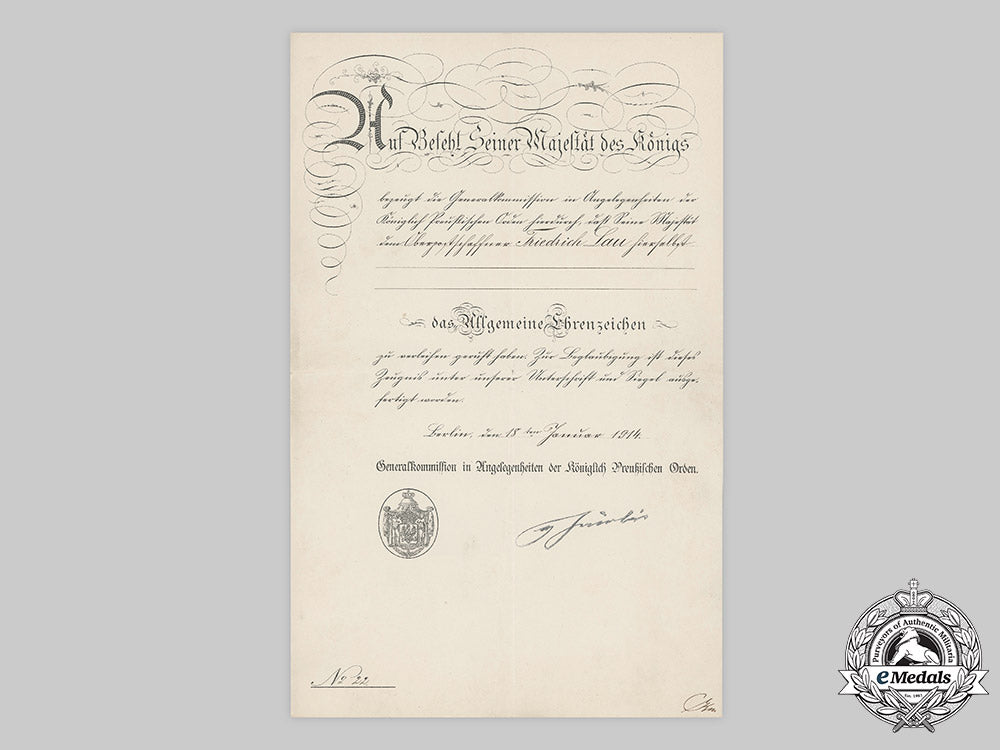 Auf Befehl Seiner Majestät des Königs
bezeugt die Generalkommission in Angelegenheiten der
Königlich Preußischen Orden hierdurch, daß Seine Majestät
dem Oberpostschaffner Friedrich Lau hierselbst
das Allgemeine Ehrenzeichen
zu verleihen geruht haben. Zur Beglaubigung ist dieses
Zeugnis unter unserer Unterschrift und Siegel ausge-
fertigt worden.
Berlin, den 18ten Januar 1914.
Generalkommission in Angelegenheiten der Königlich Preußischen Orden.
No 22
Purveyors of Authentic Militaria
eMedals